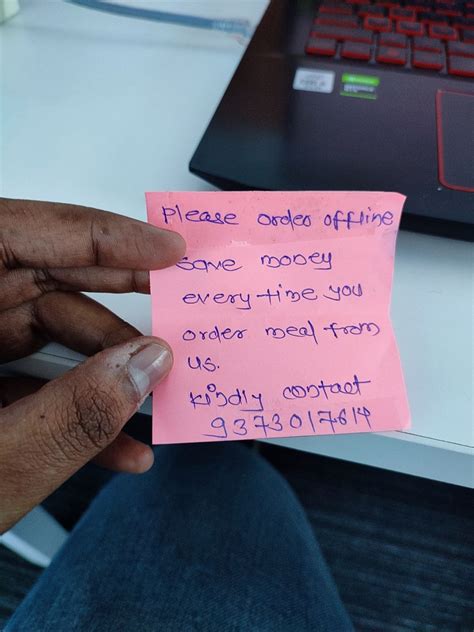 Please order offline
Save money
every time you
order meal from
us.
Kindly contact
9373017614